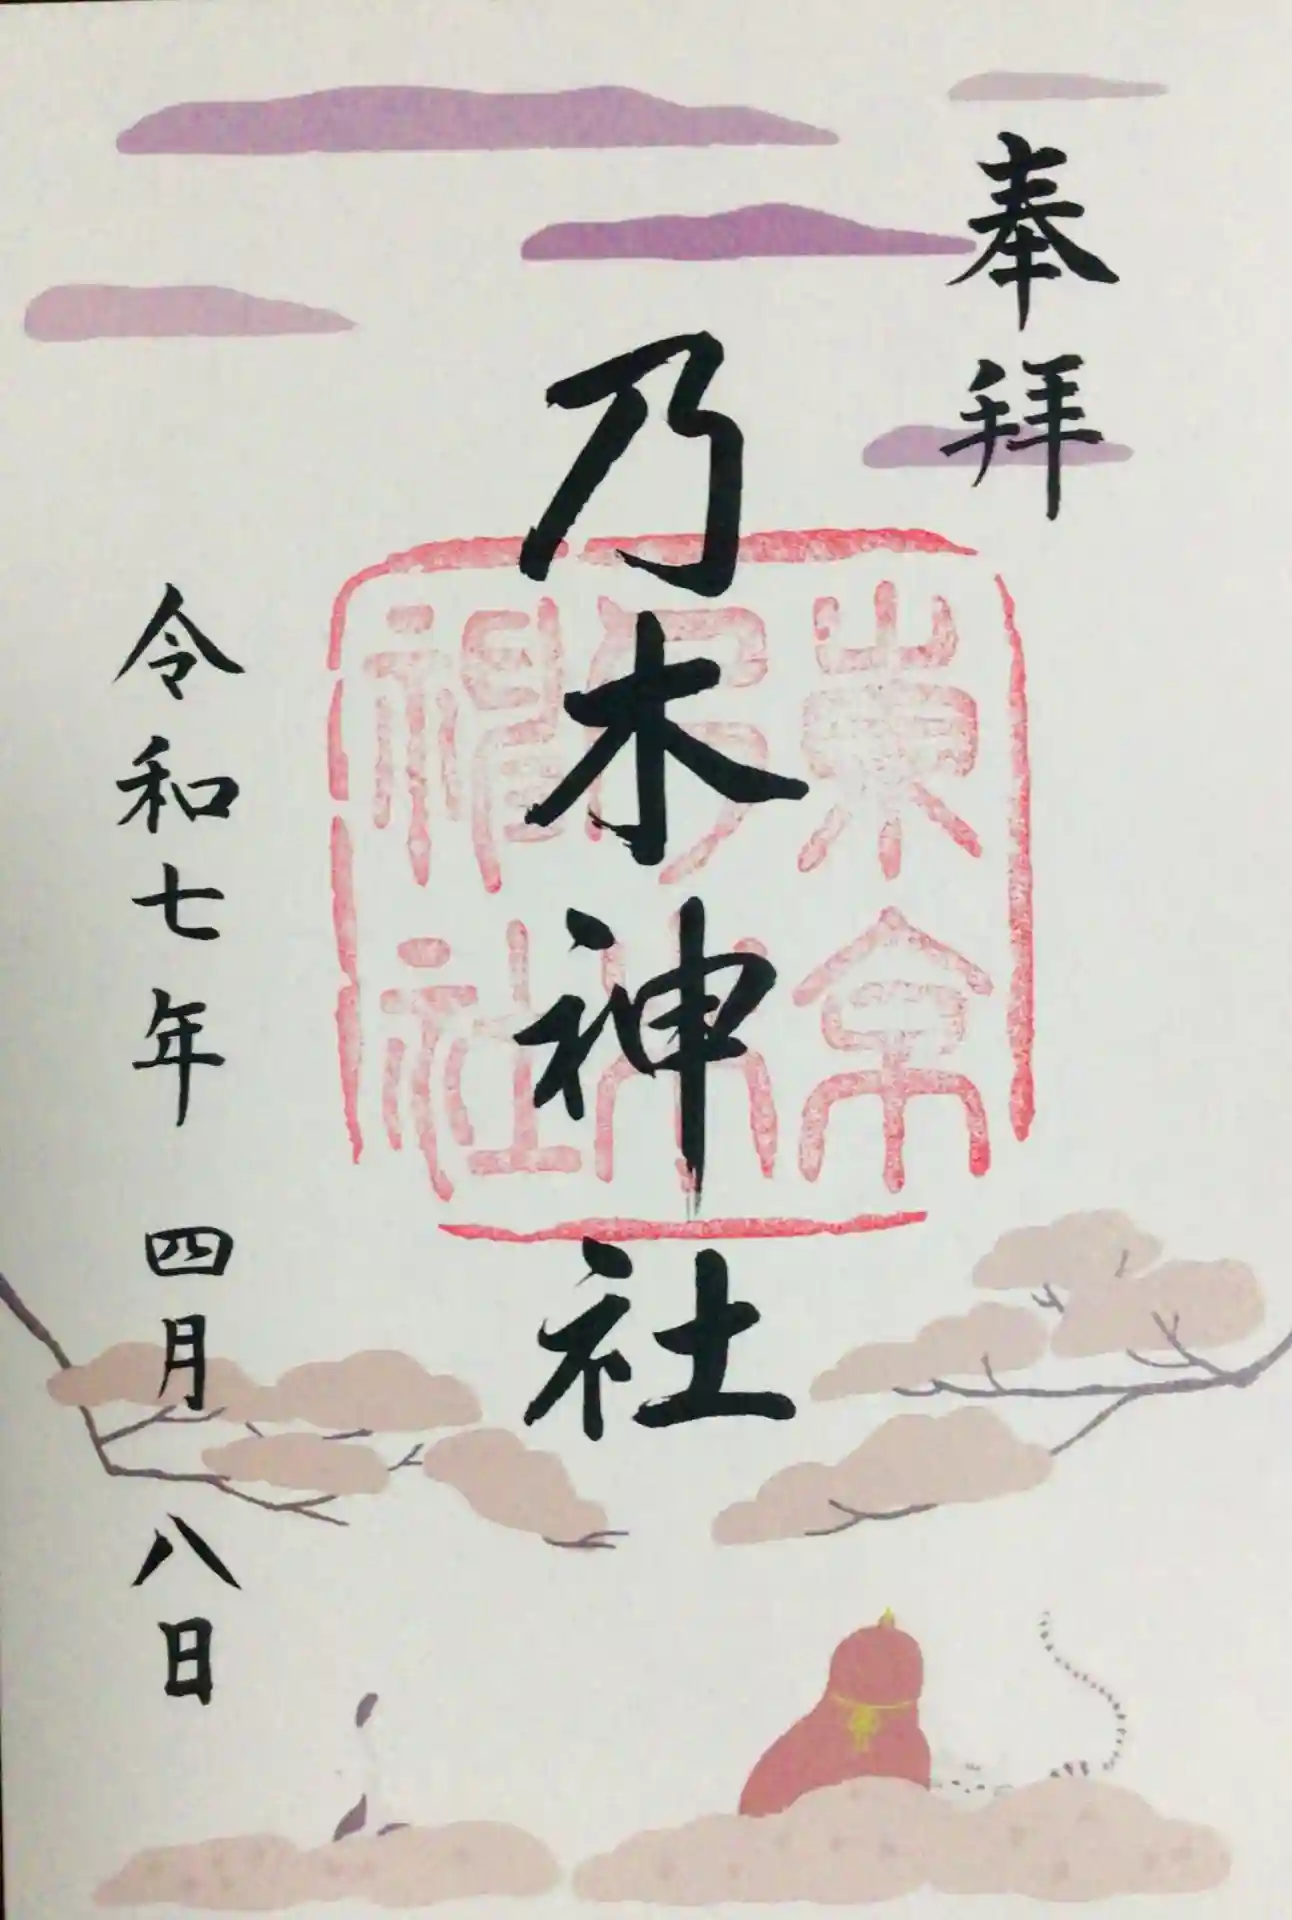 奉拝
乃木神社
東京
乃木
神社
令和七年 四月 八日